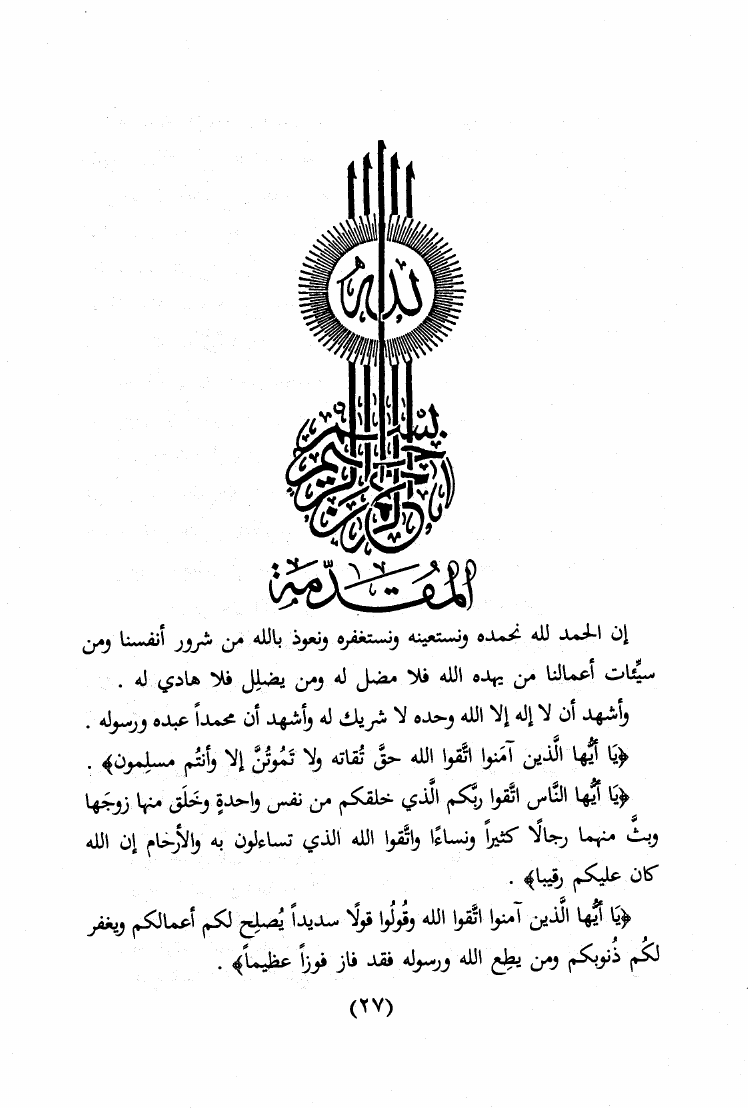 بسم الله الرحمن الرحيم
المُقَدّمَة
إن الحمد لله نحمده ونستعينه ونستغفره ونعوذ بالله من شرور أنفسنا ومن
سيِّئات أعمالنا من يهده الله فلا مضل له ومن يضلِل فلا هادي له .
وأشهد أن لا إله إلا الله وحده لا شريك له وأشهد أن محمداً عبده ورسوله .
﴿يَا أيُّها الَّذين آمَنوا اتَّقوا الله حقَّ تُقاته ولا تَمُوتُنَّ إلا وأنتُم مسلِمون﴾ .
﴿يَا أيُّها النَّاس اتَّقوا ربَّكم الَّذي خلقكم من نفس واحدةٍ وخَلَق منها زوجَها
وبثَّ منهما رجالًا كثيراً ونساءًا واتَّقوا الله الذي تساءلون به والأرحَام إن الله
كان عليكم رقيبا﴾ .
﴿يَا أيُّها الَّذين آمنوا اتَّقوا الله وقُولُوا قولًا سديداً يُصلِح لكم أعمالكم ويغفر
لكُم ذُنوبكم ومن يطِع الله ورسوله فقد فاز فوزاً عظيماً﴾ .
(٢٧)